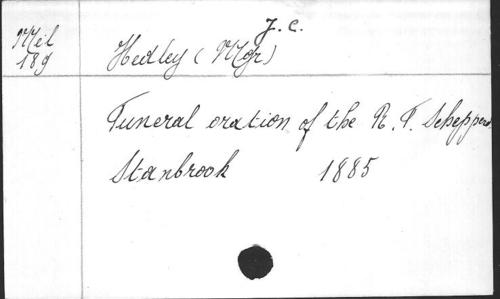 Mél
189
J. C.
Hedley (Mgr)
Funeral oration of the R. F. Shepperd
Stanbrook 1885